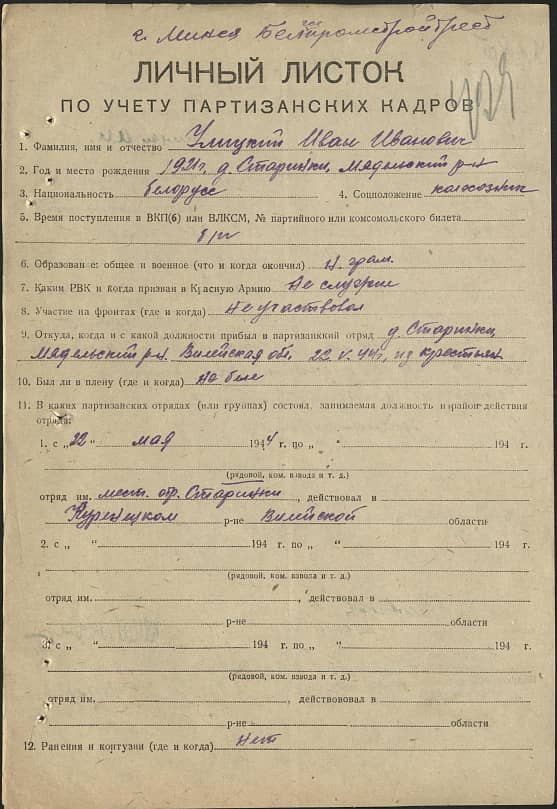 г. Минск Белпромстройтрест
ЛИЧНЫЙ ЛИСТОК
ПО УЧЕТУ ПАРТИЗАНСКИХ КАДРОВ
1. Фамилия, имя и отчество Улицкий Иван Иванович
2. Год и место рождения 1921 г., д. Старинки, Мядельский р-н
3. Национальность белорусс 4. Соцположение колхозник
5. Время поступления в ВКП(б) или ВЛКСМ, № партийного или комсомольского билета
б/п
6. Образован е: общее и военное (что и когда окончил) н. грам.
7. Каким РВК и когда призван в Красную Армию не служил
8. Участие на фронтах (где и когда) не участвовал
9. Откуда, когда и с какой должности прибыл в партизанкий отряд д. Старинки,
Мядельский р-н. Вилейская обл. 22. V. 44 г, из крестьян
10. Был ли в плену (где и когда) не был
11. В каких партизанских отрядах (или группах) состоял, занимаемая должность и район действия
отряда:
1. с „22" мая 1944 г. по „ " 194 г.
(рядовой, ком. взвода и т. д.)
отряд им. мест. отр. Старинки, действовал в
Куренецком р-не Вилейской области
2. с „ " 194 г. по „ " 194 г.
(рядовой, ком. взвода и т. д.)
отряд им. , действовал в
р-не области
3. с „ " 194 г. по „ " 194 г.
(рядовой, ком. взвода и т. д.)
отряд им. действовал в
р-не области
12. Ранения и контузии (где и когда) нет